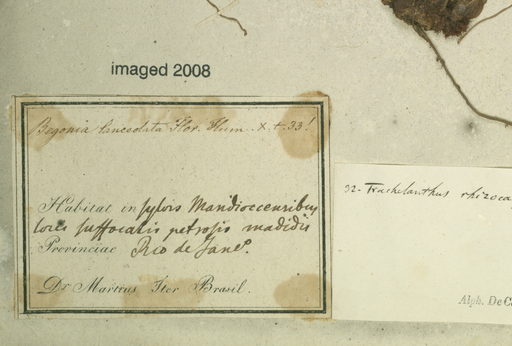 imaged 2008
Begonia lanceolata Flor. Flum. X. t. 33!
Habitat in sylvis Mandioccensibus
locis suffocatis petrosis madidis
Provinciae Rio de Jane.
Dr Martius Iter Brasil.
32- Trachelanthus rhizoca
Alph. DeC